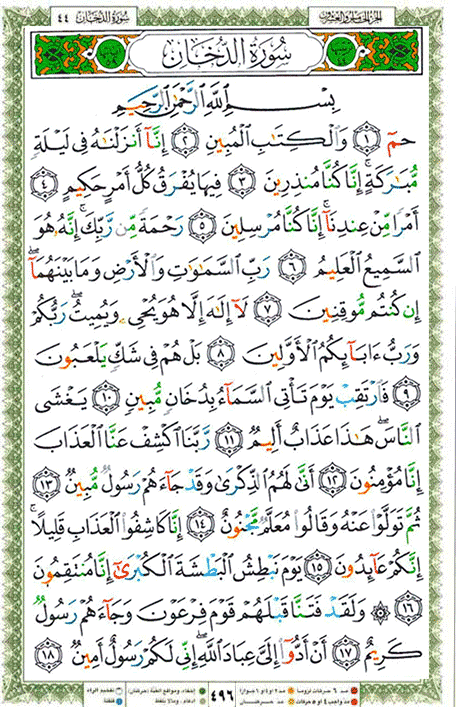 ٤٤ سُورَةُ الدُّخَانِ الجزء الخامس والعشرون
سُورَةُ الدُّخَانِ
بِسْمِ اللَّهِ الرَّحْمَٰنِ الرَّحِيمِ
حمٓ ١ وَالْكِتَابِ الْمُبِينِ ٢ إِنَّآ أَنزَلْنَاهُ فِي لَيْلَةٍ
مُّبَارَكَةٍ ۚ إِنَّا كُنَّا مُنذِرِينَ ٣ فِيهَا يُفْرَقُ كُلُّ أَمْرٍ حَكِيمٍ ٤
أَمْرًا مِّنْ عِندِنَآ ۚ إِنَّا كُنَّا مُرْسِلِينَ ٥ رَحْمَةً مِّن رَّبِّكَ ۚ إِنَّهُ هُوَ
السَّمِيعُ الْعَلِيمُ ٦ رَبِّ السَّمَاوَاتِ وَالْأَرْضِ وَمَا بَيْنَهُمَآ ۖ
إِن كُنتُم مُّوقِنِينَ ٧ لَآ إِلَٰهَ إِلَّا هُوَ يُحْيِي وَيُمِيتُ ۖ رَبُّكُمْ
وَرَبُّ ءَابَآئِكُمُ الْأَوَّلِينَ ٨ بَلْ هُمْ فِي شَكٍّ يَلْعَبُونَ
٩ فَارْتَقِبْ يَوْمَ تَأْتِي السَّمَآءُ بِدُخَانٍ مُّبِينٍ ١٠ يَغْشَى
النَّاسَ ۖ هَٰذَا عَذَابٌ أَلِيمٌ ١١ رَّبَّنَا اكْشِفْ عَنَّا الْعَذَابَ
إِنَّا مُؤْمِنُونَ ١٢ أَنَّىٰ لَهُمُ الذِّكْرَىٰ وَقَدْ جَآءَهُمْ رَسُولٌ مُّبِينٌ ١٣
ثُمَّ تَوَلَّوْا عَنْهُ وَقَالُوا مُعَلَّمٌ مَّجْنُونٌ ١٤ إِنَّا كَاشِفُوا الْعَذَابِ قَلِيلًا ۚ
إِنَّكُمْ عَآئِدُونَ ١٥ يَوْمَ نَبْطِشُ الْبَطْشَةَ الْكُبْرَىٰٓ إِنَّا مُنتَقِمُونَ
١٦ ۞ وَلَقَدْ فَتَنَّا قَبْلَهُمْ قَوْمَ فِرْعَوْنَ وَجَآءَهُمْ رَسُولٌ
كَرِيمٌ ١٧ أَنْ أَدُّوٓا إِلَيَّ عِبَادَ اللَّهِ ۖ إِنِّي لَكُمْ رَسُولٌ أَمِينٌ ١٨
٤٩٦